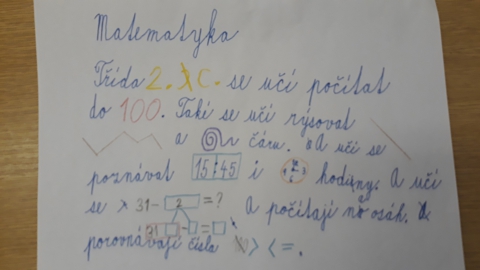 Matematyka
Třída 2. C. se učí počítat
do 100. Také se učí rýsovat
a čáru. A učí se
poznávat 15:45 i hodiny. A učí
se 31- 2 =? A počítají na osách.
31 - = 
porovnávají čísla > < =.